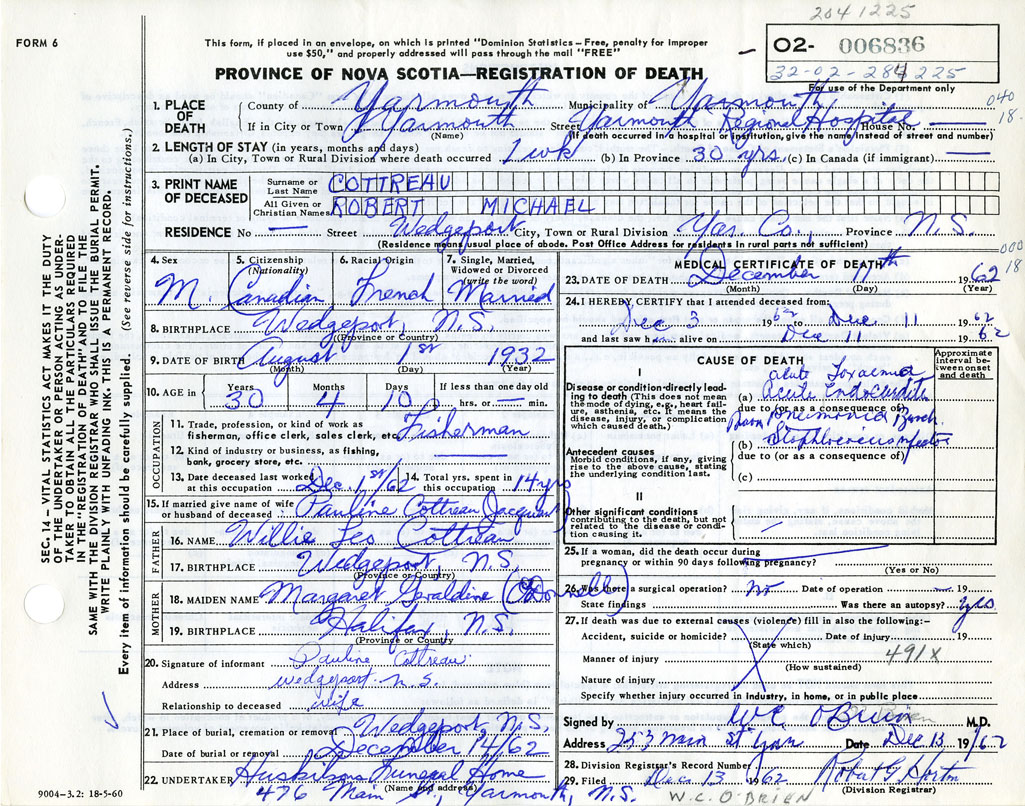 2041225
FORM 6
This form, if placed in an envelope, on which is printed "Dominion Statistics – Free, penalty for improper
use $50," and properly addressed will pass through the mail "FREE"
02- 006836
32-02-284225
For use of the Department only
PROVINCE OF NOVA SCOTIA—REGISTRATION OF DEATH
1. PLACE OF DEATH
County of Yarmouth Municipality of Yarmouth
040
18.
If in City or Town Yarmouth Street Yarmouth Regional Hospital House No. —
(Name) (If death occurred in a hospital or institution, give the name instead of street and number)
2. LENGTH OF STAY (in years, months and days)
(a) In City, Town or Rural Division where death occurred 1 wk (b) In Province 30 yrs (c) In Canada (if immigrant) —
3. PRINT NAME OF DECEASED
Surname or Last Name COTTREAU
All Given or Christian Names ROBERT MICHAEL
RESIDENCE No — Street Wedgeport City, Town or Rural Division Yar. Co., Province N.S.
(Residence means usual place of abode. Post Office Address for residents in rural parts not sufficient)
000
18
4. Sex M.
5. Citizenship (Nationality) Canadian
6. Racial Origin French
7. Single, Married, Widowed or Divorced (write the word) Married
8. BIRTHPLACE Wedgeport, N.S.
(Province or Country)
9. DATE OF BIRTH August 1st 1932
(Month) (Day) (Year)
10. AGE in Years 30 Months 4 Days 10 If less than one day old hrs. or — min.
OCCUPATION
11. Trade, profession, or kind of work as fisherman, office clerk, sales clerk, etc. Fisherman
12. Kind of industry or business, as fishing, bank, grocery store, etc.
13. Date deceased last worked at this occupation Dec. 1st/62
14. Total yrs. spent in this occupation 14 yrs
15. If married give name of wife or husband of deceased Pauline Cottreau (Jacquard)
FATHER
16. NAME Willie Leo Cottreau
17. BIRTHPLACE Wedgeport, N.S.
(Province or Country)
MOTHER
18. MAIDEN NAME Margaret Geraldine (O'Donnell)
19. BIRTHPLACE Halifax, N.S.
(Province or Country
20. Signature of informant Pauline Cottreau
Address Wedgeport. N.S.
Relationship to deceased wife
21. Place of burial, cremation or removal Wedgeport, N.S.
Date of burial or removal December 14/62
22. UNDERTAKER Huskilson Funeral Home
(Name and address)
476 Main St., Yarmouth, N.S.
9004-3.2: 18-5-60
MEDICAL CERTIFICATE OF DEATH
23. DATE OF DEATH December 11th 1962
(Month) (Day) (Year)
24. I HEREBY CERTIFY that I attended deceased from:
Dec 3 1962 to Dec. 11 1962
and last saw h alive on Dec 11 1962
CAUSE OF DEATH
Approximate interval between onset and death
I
Disease or condition-directly leading to death (This does not mean the mode of dying, eg., heart failure, asthenia, etc. It means the disease, injury, or complication which caused death.)
acute Toxaemia
(a) Acute Endocarditis
due to (or as a consequence of)
Pneumonia
(b) Staphlococcus
due to (or as a consequence of)
(c)
Antecedent causes
Morbid conditions, if any, giving rise to the above cause, stating the underlying condition last.
II
Other significant conditions
contributing to the death, but not related to the disease or condition causing it.
25. If a woman, did the death occur during pregnancy or within 90 days following pregnancy?
(Yes or No)
26. Was there a surgical operation? No Date of operation — 19
State findings Was there an autopsy? yes
27. If death was due to external causes (violence) fill in also the following:–
Accident, suicide or homicide? Date of injury 19
(State which)
Manner of injury 491X
(How sustained)
Nature of injury
Specify whether injury occurred in industry, in home, or in public place
Signed by W.C. O'Brien M.D.
Address 253 Main St Yar. Date Dec 13 1962
28. Division Registrar's Record Number
29. Filed Dec. 13 1962 Robert G. Horton
(Division Registrar)
W.C. O'BRIEN
SEC. 14 – VITAL STATISTICS ACT MAKES IT THE DUTY
OF THE UNDERTAKER OR PERSON ACTING AS UNDERTAKER TO OBTAIN ALL THE PARTICULARS REQUIRED
IN THE "REGISTRATION OF DEATH" AND TO FILE THE
SAME WITH THE DIVISION REGISTRAR WHO SHALL ISSUE THE BURIAL PERMIT.
WRITE PLAINLY WITH UNFADING INK. THIS IS A PERMANENT RECORD.
Every item of information should be carefully supplied. (See reverse side for instructions.)